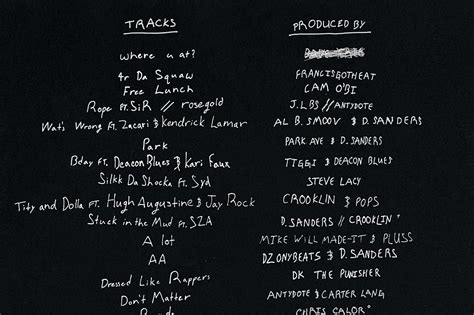 TRACKS
PRODUCED BY
where u at?
4r Da Squaw
FRANCISGOTHEAT
Free Lunch
CAM O'BI
Rope FT. SiR // rosegold
J.LBS // ANTYDOTE
Wat's Wrong FT. Zacari & Kendrick Lamar
AL B. SMOOV & D. SANDERS
Park
PARK AVE & D. SANDERS
Bday FT. Deacon Blues & Kari Faux
TIGGI & DEACON BLUES
Silkk Da Shocka FT. Syd
STEVE LACY
Tity and Dolla FT. Hugh Augustine & Jay Rock
CROOKLIN & POPS
Stuck in the Mud FT. SZA
D. SANDERS // CROOKLIN
A lot
MIKE WILL MADE-IT & PLUSS
AA
DZONYBEATS & D. SANDERS
Dressed Like Rappers
DK THE PUNISHER
Don't Matter
ANTYDOTE & CARTER LANG
CHRIS CALOR